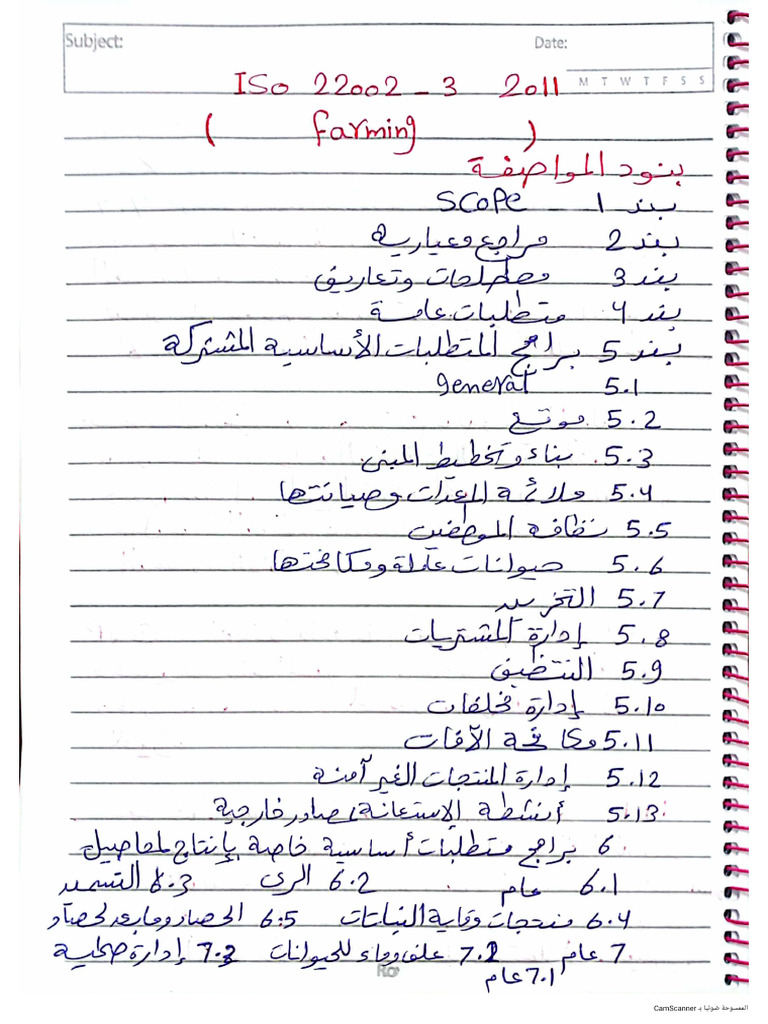 Subject:
Date:
M T W T F S S
ISO 22002 - 3 2011
( farming )
بنود المواصفة
بند 1 SCOPE
بند 2 مراجع معيارية
بند 3 مصطلحات وتعاريف
بند 4 متطلبات عامة
بند 5 برامج المتطلبات الأساسية المشتركة
5.1 general
5.2 موقع
5.3 بناء وتخطيط المبنى
5.4 ملائمة المعدات وصيانتها
5.5 نظافة الموظفين
5.6 حيوانات عاملة ومكافحتها
5.7 التخزين
5.8 إدارة المشتريات
5.9 التنظيف
5.10 إدارة مخلفات
5.11 مكافحة الآفات
5.12 إدارة المنتجات الغير آمنة
5.13 أنشطة الإستعانة بمصادر خارجية
6 برامج متطلبات أساسية خاصة بإنتاج المحاصيل
6.1 عام 6.2 الري 6.3 التسميد
6.4 منتجات وقاية النباتات 6.5 الحصاد وما بعد الحصاد
7 عام 7.2 علف وماء للحيوانات 7.3 إدارة صحية
7.1 عام
الممسوحة ضوئيا بـ CamScanner